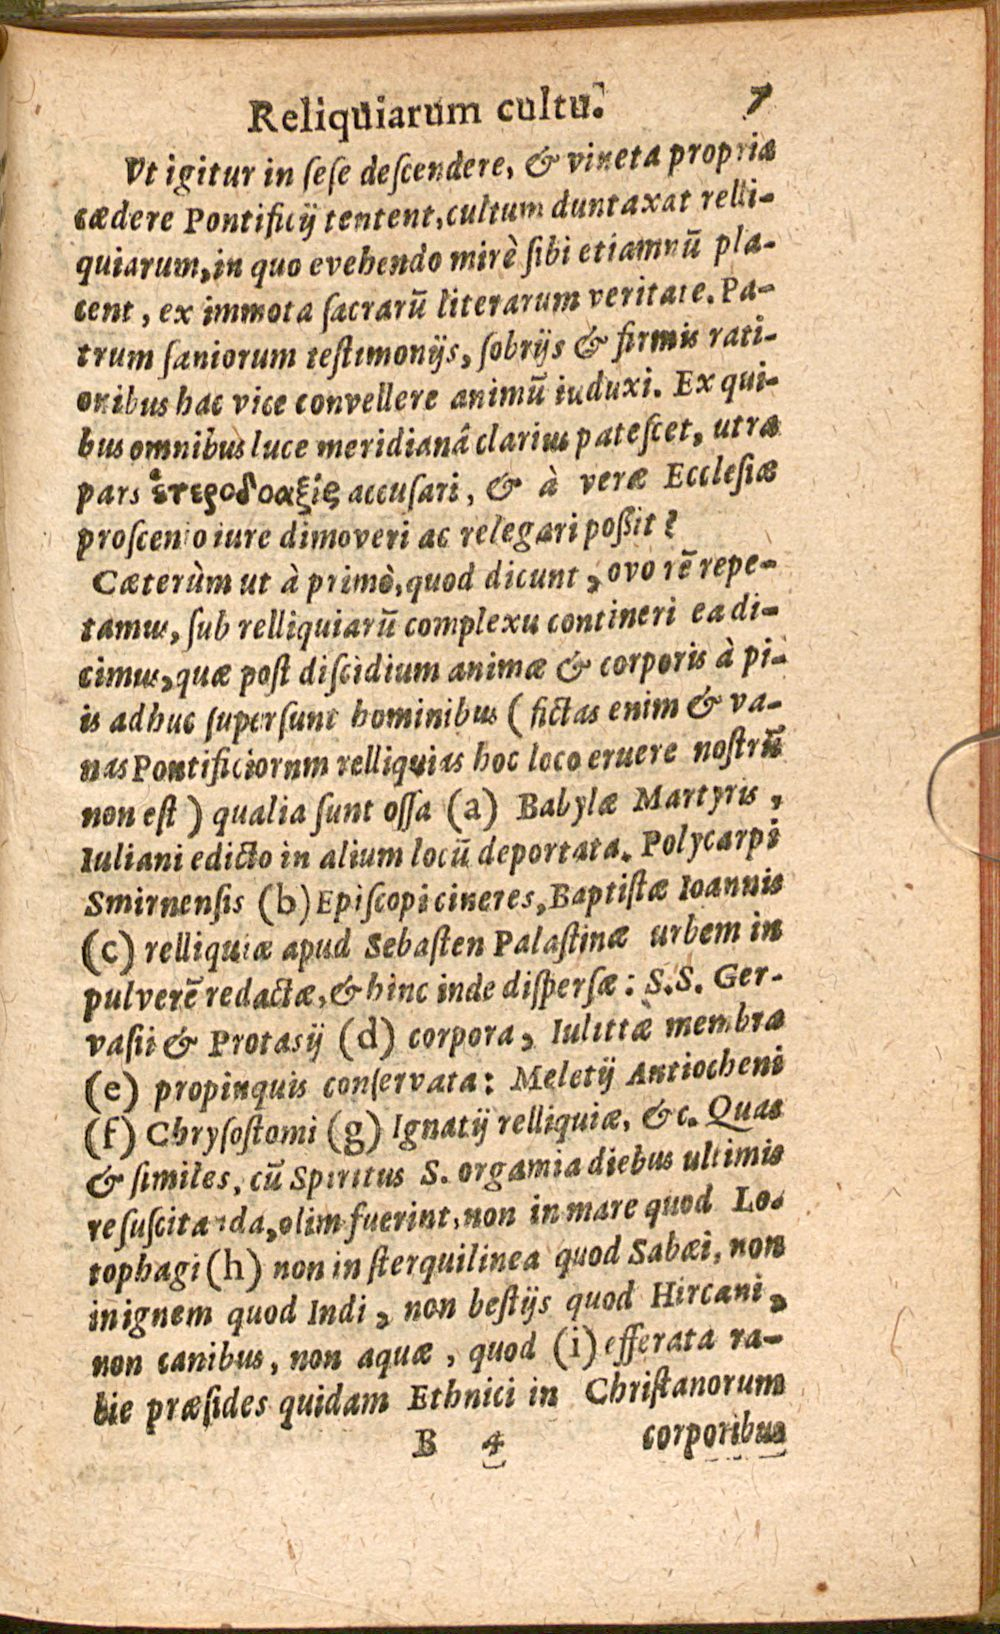 Reliquiarum cultu. 7
Vt igitur in ſeſe deſcendere, & vineta propria
cædere Pontificij tentent, cultum duntaxat relli-
quiarum, in quo evehendo mirè ſibi etiamnū pla-
cent, ex immota ſacrarū literarum veritate. Pa-
trum ſaniorum teſtimonijs, ſobrijs & firmis rati-
onibus hac vice convellere animū induxi. Ex qui-
bus omnibus luce meridianâ clarius pateſcet, utra
pars ἑτεροδοαξίς accuſari, & à veræ Eccleſiæ
proſcenio iure dimoveri ac relegari poßit?
Cæterùm ut à primò, quod dicunt, ovo rē repe-
tamus, ſub relliquiarū complexu contineri ea di-
cimus, quæ poſt diſcidium animæ & corporis à pi-
is adhuc ſuperſunt hominibus (fictas enim & va-
nas Pontificiornm relliquias hoc loco eruere noſtrū
non eſt) qualia ſunt oſſa (a) Babylæ Martyris,
Iuliani edicto in alium locū deportata. Polycarpi
Smirnenſis (b) Epiſcopi cineres, Baptiſtæ Ioannis
(c) relliquiæ apud Sebaſten Palaſtinæ urbem in
pulverē redactæ, & hinc inde diſperſæ: S.S. Ger-
vaſii & Protasij (d) corpora, Iulittæ membra
(e) propinquis conſervata: Meletij Antiocheni
(f) Chryſoſtomi (g) Ignatij relliquiæ, &c. Quas
& ſimiles, cū Spiritus S. orgamia diebus ultimis
reſuſcitanda, olim fuerint, non in mare quod Lo-
tophagi (h) non in ſterquilinea quod Sabæi, non
in ignem quod Indi, non beſtijs quod Hircani,
non canibus, non aquæ, quod (i) efferata ra-
bie præſides quidam Ethnici in Chriſtanorum
B 4 corporibus